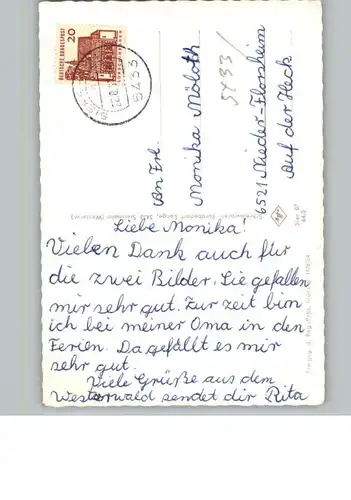 Liebe Monika!
Vielen Dank auch für
die zwei Bilder. Sie gefallen
mir sehr gut. Zur Zeit bin
ich bei meiner Oma in den
Ferien. Da gefällt es mir
sehr gut.
Viele Grüße aus dem
Westerwald sendet dir Rita
An Frl.
Monika Möloth
6521 Nieder-Flörsheim
Auf der Heck
5433
DEUTSCHE BUNDESPOST
20
5433